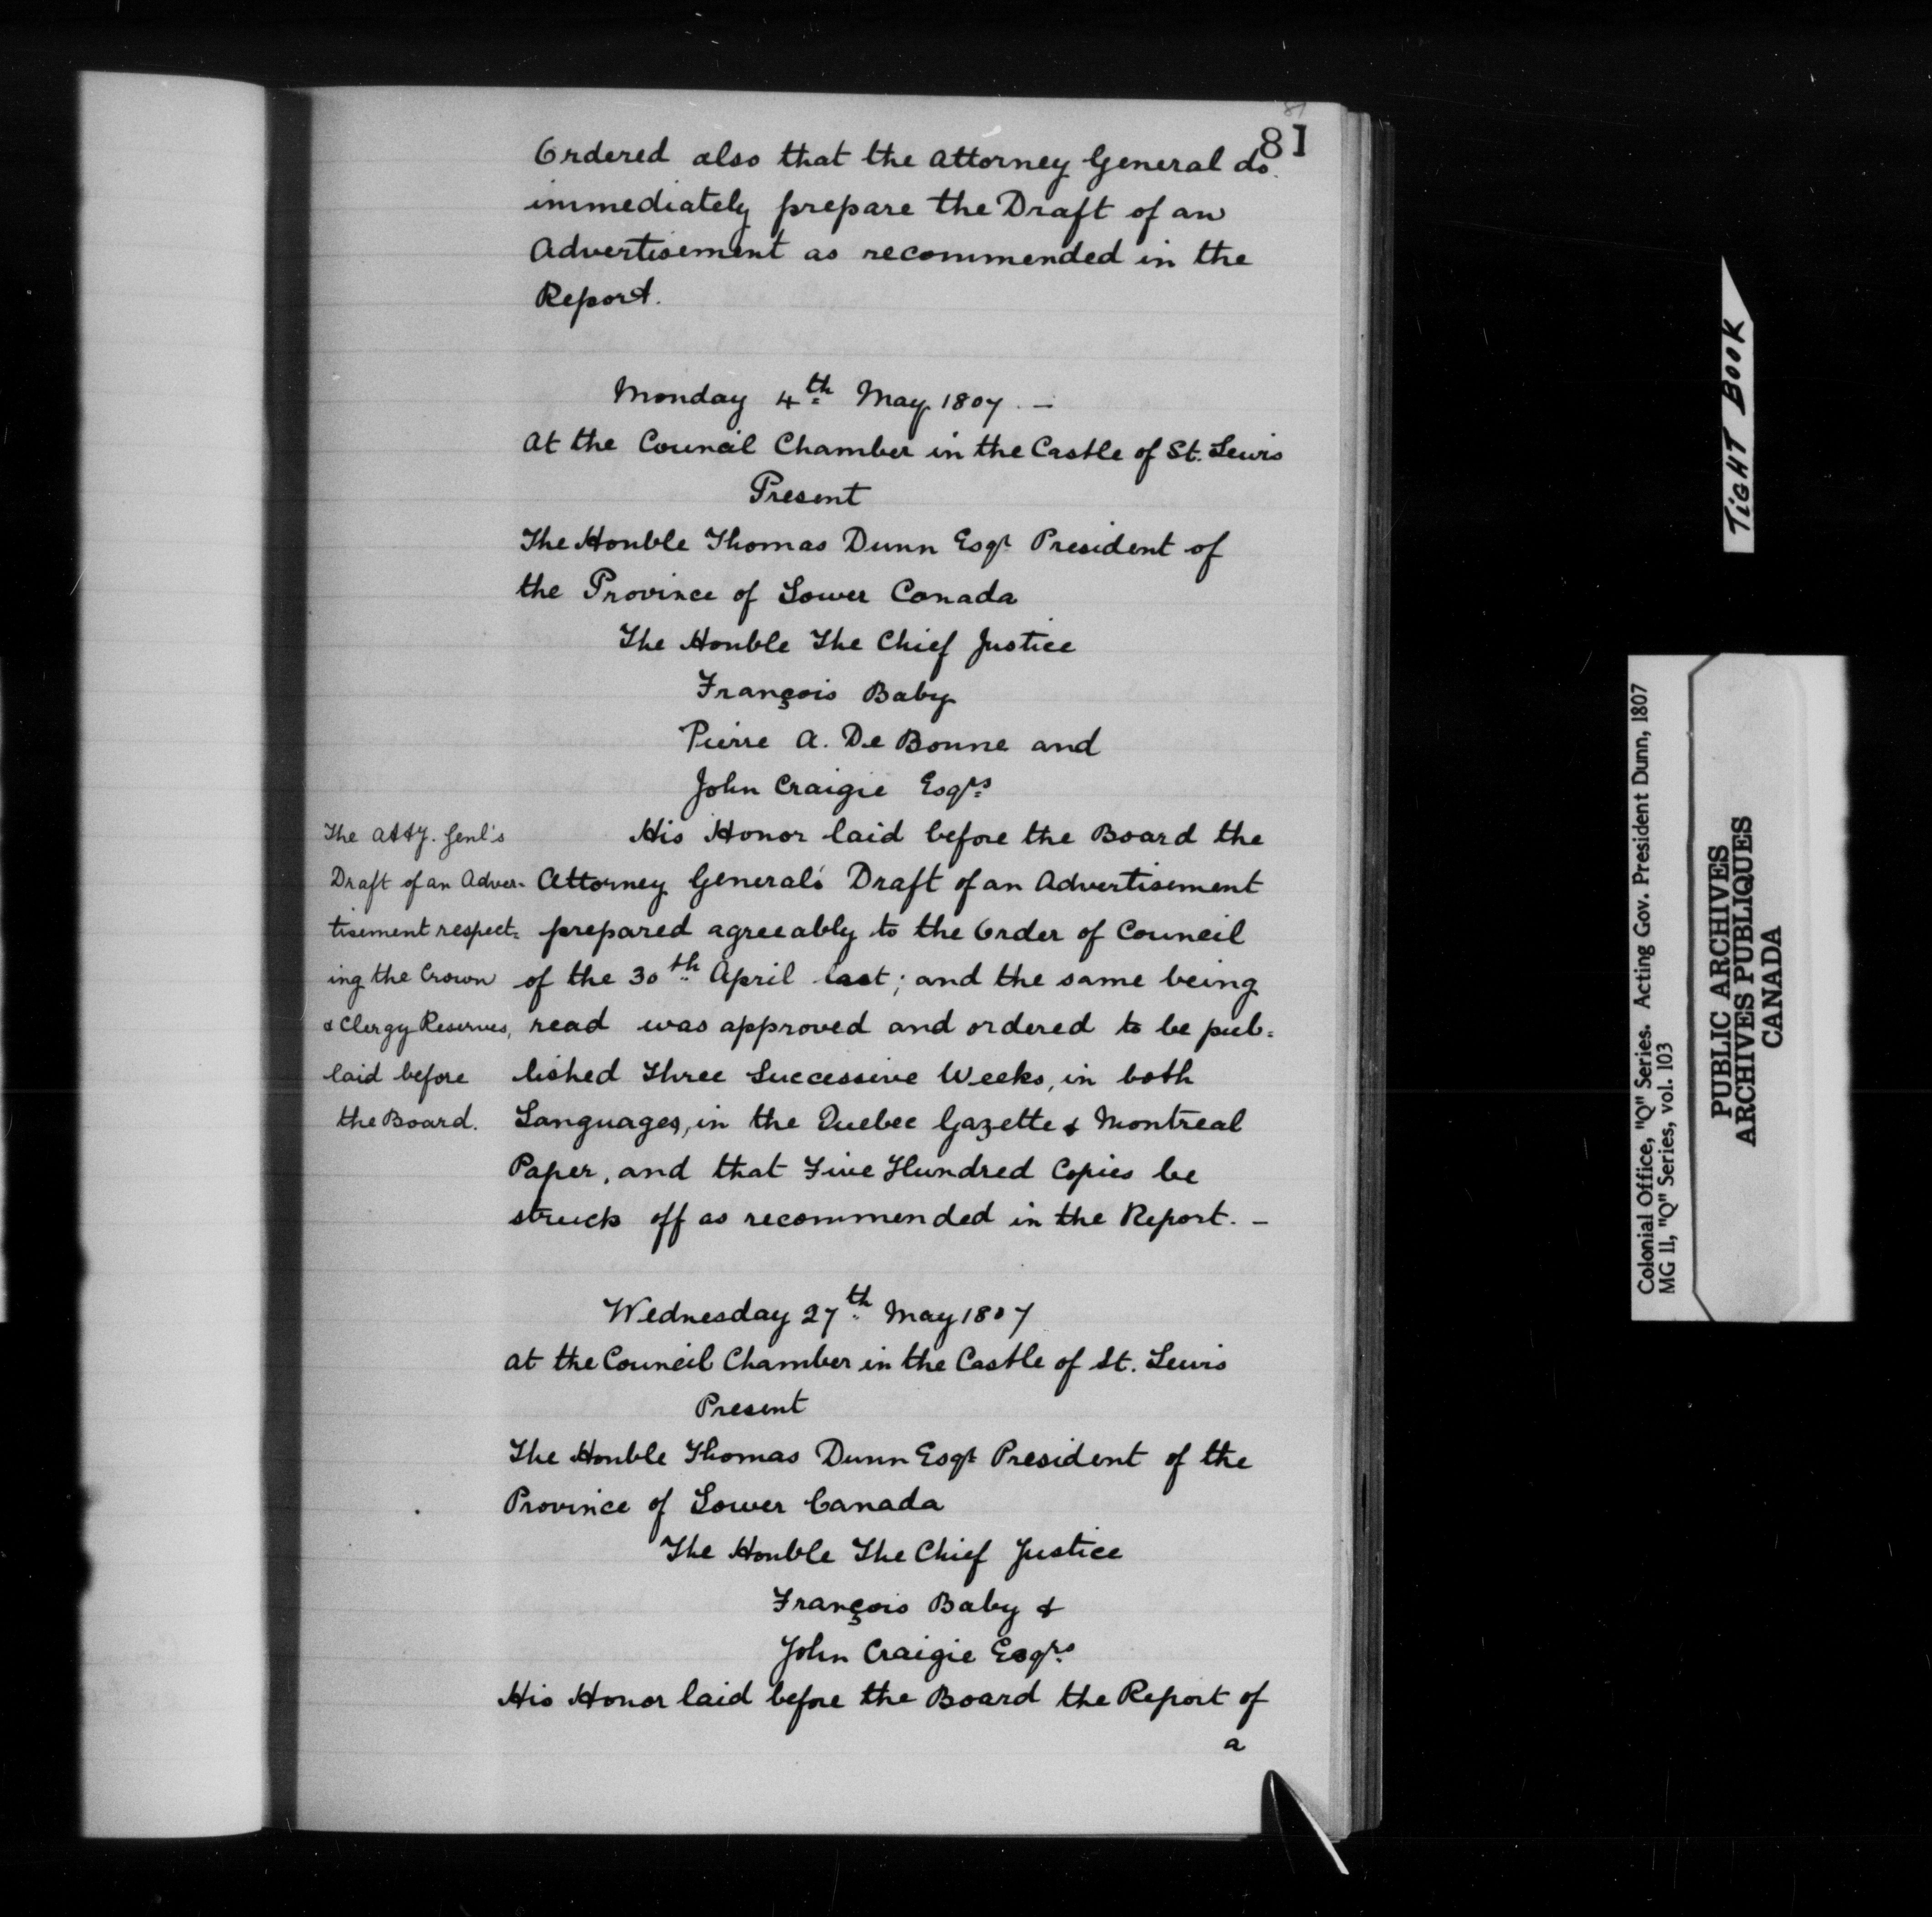 81
Ordered also that the Attorney General do
immediately prepare the Draft of an
Advertisement as recommended in the
Report.
Monday 4th May 1807. —
At the Council Chamber in the Castle of St. Lewis
Present
The Honble Thomas Dunn Esqr President of
the Province of Lower Canada
The Honble The Chief Justice
François Baby
Pierre A. De Bonne and
John Craigie Esqrs
The Atty. Genl's
Draft of an Adver-
tisement respect=
ing the Crown
& Clergy Reserves,
laid before
the Board.
His Honor laid before the Board the
Attorney General's Draft of an Advertisement
prepared agreeably to the Order of Council
of the 30th April last; and the same being
read was approved and ordered to be pub=
lished Three Successive Weeks, in both
Languages, in the Quebec Gazette & Montreal
Paper, and that Five Hundred Copies be
struck off as recommended in the Report. —
Wednesday 27th May 1807
At the Council Chamber in the Castle of St. Lewis
Present
The Honble Thomas Dunn Esqr President of the
Province of Lower Canada
The Honble The Chief Justice
François Baby &
John Craigie Esqrs
His Honor laid before the Board the Report of
a
TIGHT BOOK
Colonial Office, "Q" Series. Acting Gov. President Dunn, 1807
MG 11, "Q" Series, vol. 103
PUBLIC ARCHIVES
ARCHIVES PUBLIQUES
CANADA